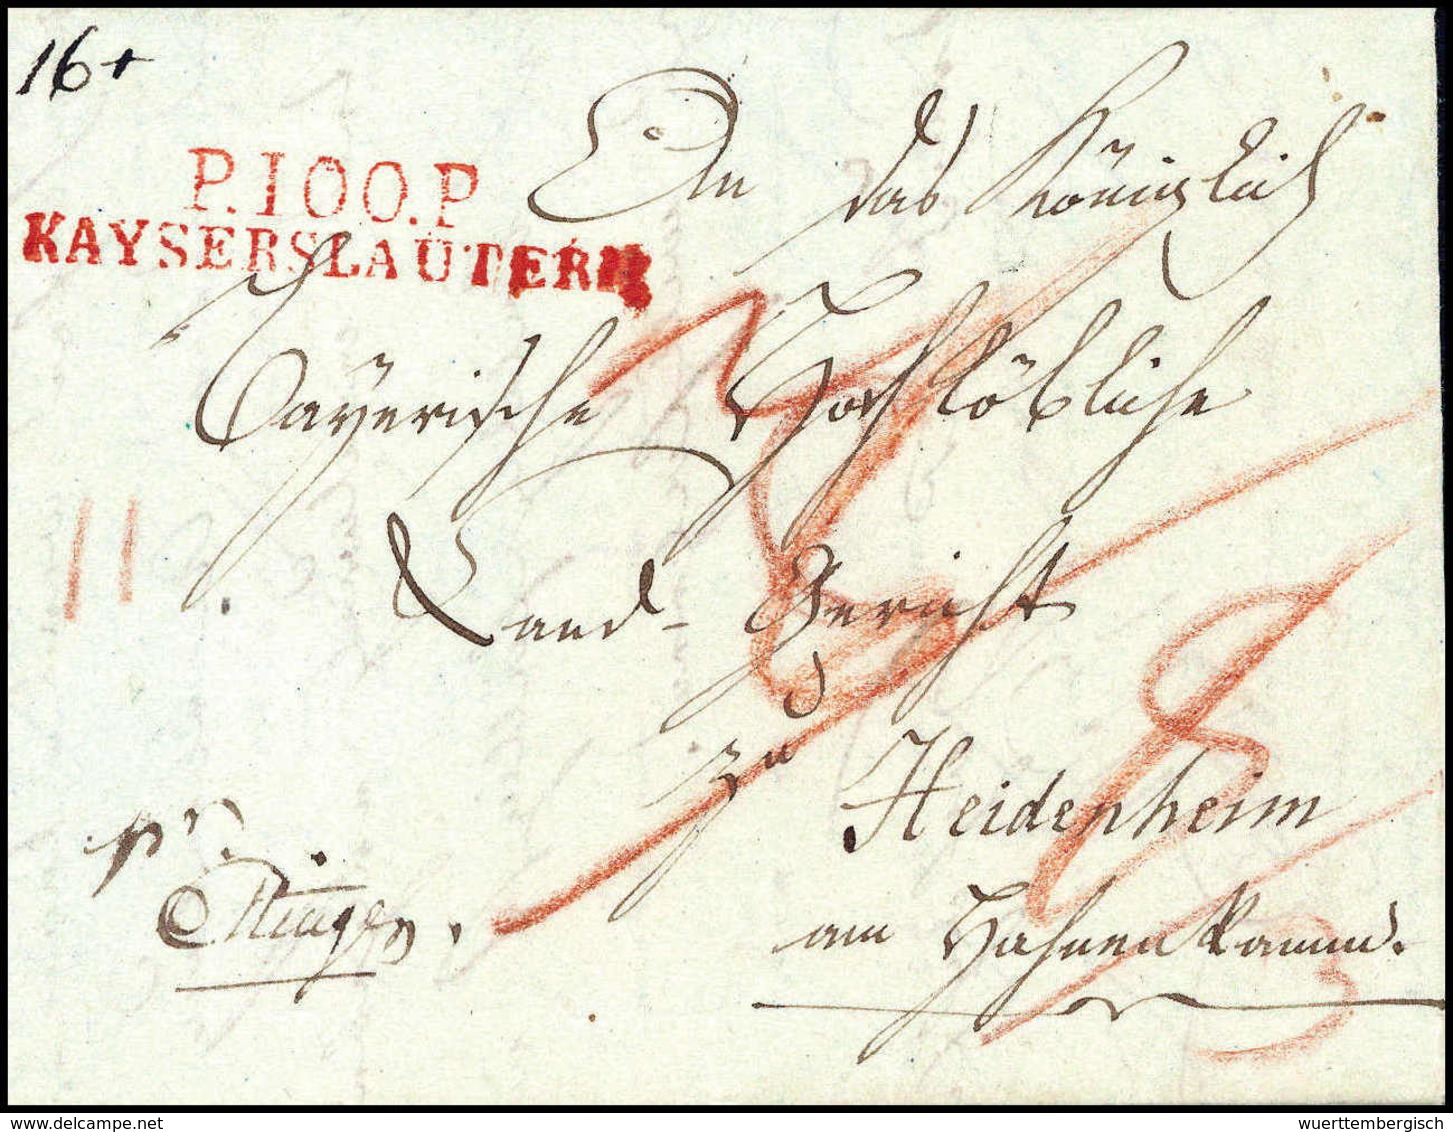 16+
P.100.P
KAYSERSLAUTERN
An das Königlich
Bayerische Hochlöbliche
Land-Gericht
zu
Heidenheim
am Hahnenkamm.
pr.
Öttingen.
wuerttembergisch